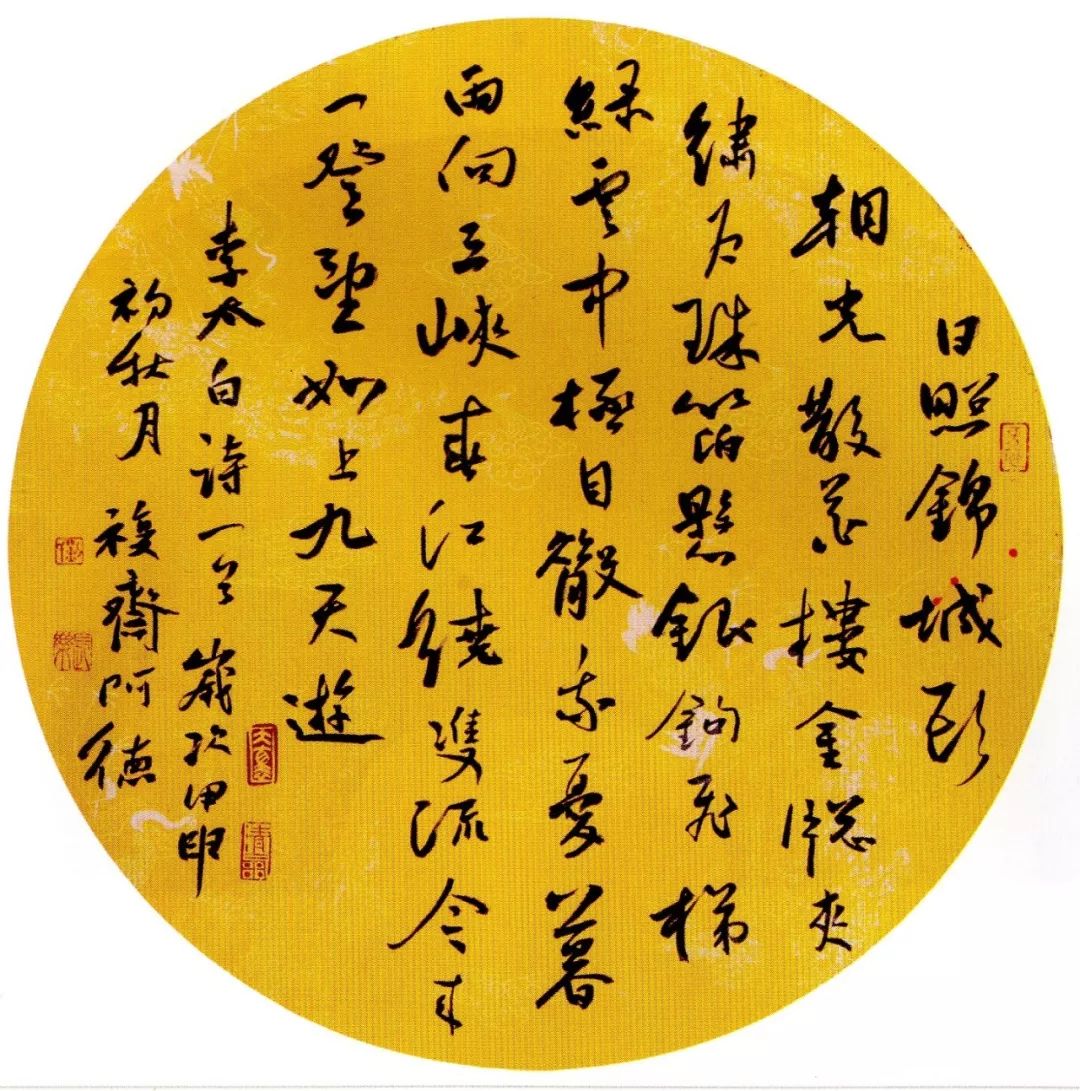 日照錦城頭
朝光散花樓金牕夾
繡户珠箔懸銀鉤飛梯
緑雲中極目散我憂暮
雨向三峽春江繞雙流今來
一登望如上九天遊
李太白詩一首歲次甲申
初秋月複齋阿德